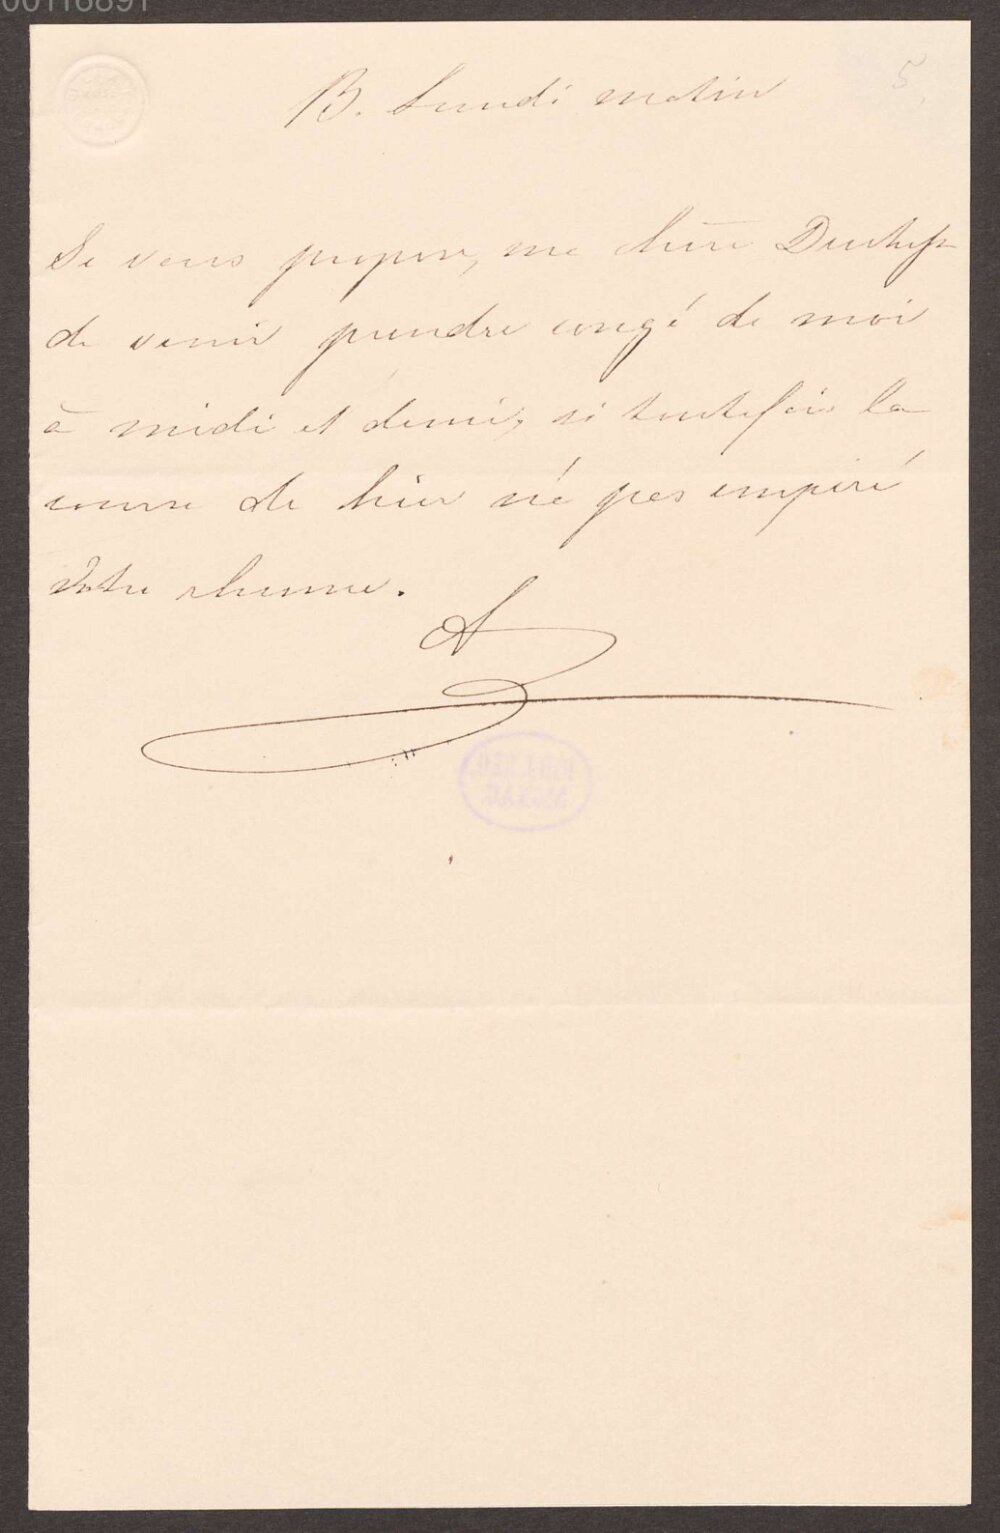 00116891
5.
B. Lundi matin
Je vous propose, ma chère Duchesse
de venir prendre congé de moi
à midi et demi, si toutefois la
course de hier n'é pas empiré
Votre rhume.
A